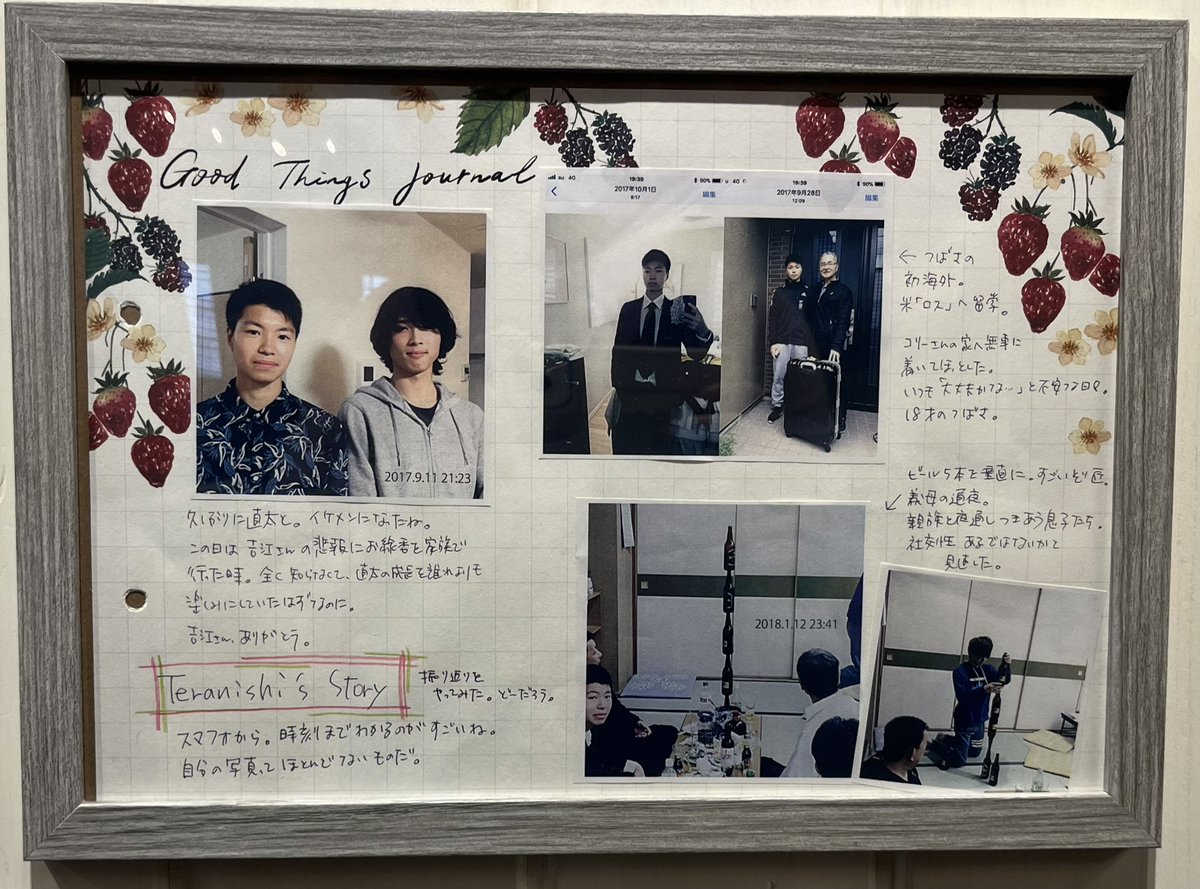 Good Things Journal
2017.9.11 21:23
久しぶりに直太と。イケメンになったね。
この日は吉江さんの悲報にお線香を家族で
行った時。全く知らなくて、直太の成長を誰よりも
楽しみにしていたはずなのに。
吉江さん、ありがとう。
Teranishi's Story
振り返りを
やってみた。どーだろう。
スマフォから。時刻までわかるのがすごいね。
自分の写真ってほとんどないものだ。
au 4G 19:39 90% 4G 19:39 90%
2017年10月1日 編集 2017年9月28日 編集
8:17 12:09
← つばさの
初海外。
米「ロス」へ留学。
コリーさんの家へ無事に
着いてほっとした。
いつも「大丈夫かな…」と不安な日々。
18才のつばさ。
ビール5本を垂直に。すごいぞ匠。
義母の通夜。
親族と夜通しつきあう息子たち。
社交性あるではないかと
見直した。
2018.1.12 23:41